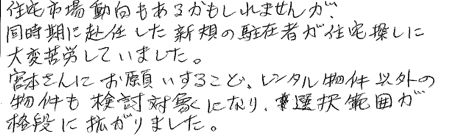 住宅市場動向もあるかもしれませんが、
同時期に赴任した新規の駐在者が住宅探しに
大変苦労していました。
宮本さんにお願いすること、レンタル物件以外の
物件も検討対象になり、選択範囲が
格段に拡がりました。